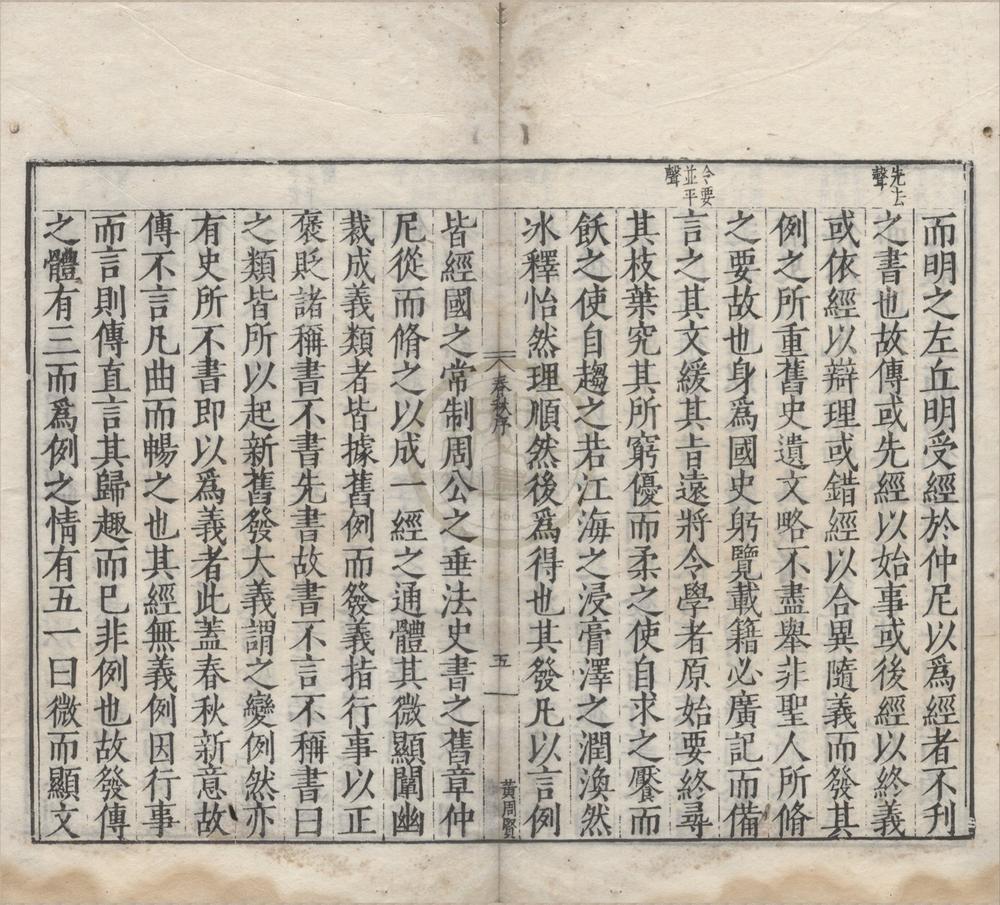 先去
聲
令要
並平
聲
而明之左丘明受經於仲尼以爲經者不刊
之書也故傳或先經以始事或後經以終義
或依經以辯理或錯經以合異隨義而發其
例之所重舊史遺文略不盡舉非聖人所脩
之要故也身爲國史躬覽載籍必廣記而備
言之其文緩其旨遠將令學者原始要終尋
其枝葉究其所窮優而柔之使自求之饜而
飫之使自趨之若江海之浸膏澤之潤渙然
冰釋怡然理順然後爲得也其發凡以言例
春秋序
五
黃周賢
皆經國之常制周公之垂法史書之舊章仲
尼從而脩之以成一經之通體其微顯闡幽
裁成義類者皆據舊例而發義指行事以正
褒貶諸稱書不書先書故書不言不稱書曰
之類皆所以起新舊發大義謂之變例然亦
有史所不書即以爲義者此蓋春秋新意故
傳不言凡曲而暢之也其經無義例因行事
而言則傳直言其歸趣而已非例也故發傳
之體有三而爲例之情有五一曰微而顯文